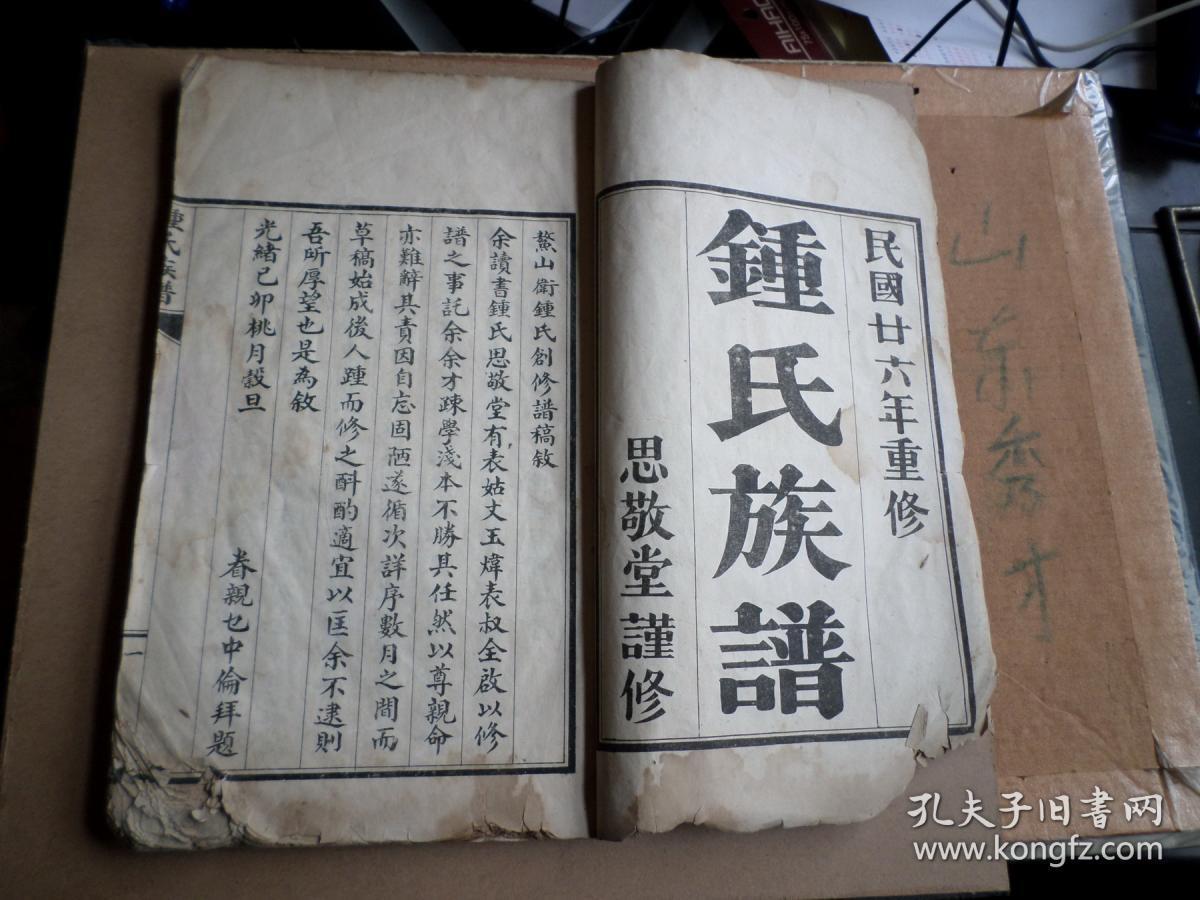 民國廿六年重修
鍾氏族譜
思敬堂謹修
鰲山衛鍾氏創修譜稿敘
余讀書鍾氏思敬堂有表姑丈玉煒表叔全啟以修
譜之事託余余才疎學淺本不勝其任然以尊親命
亦難辭其責因自忘固陋遂循次詳序數月之間而
草稿始成後人踵而修之斟酌適宜以匡余不逮則
吾所厚望也是為敘
光緒己卯桃月穀旦
眷親乜中倫拜題
鍾氏族譜
一
山东秀才
AIHAO
孔夫子旧书网
www.kongfz.com